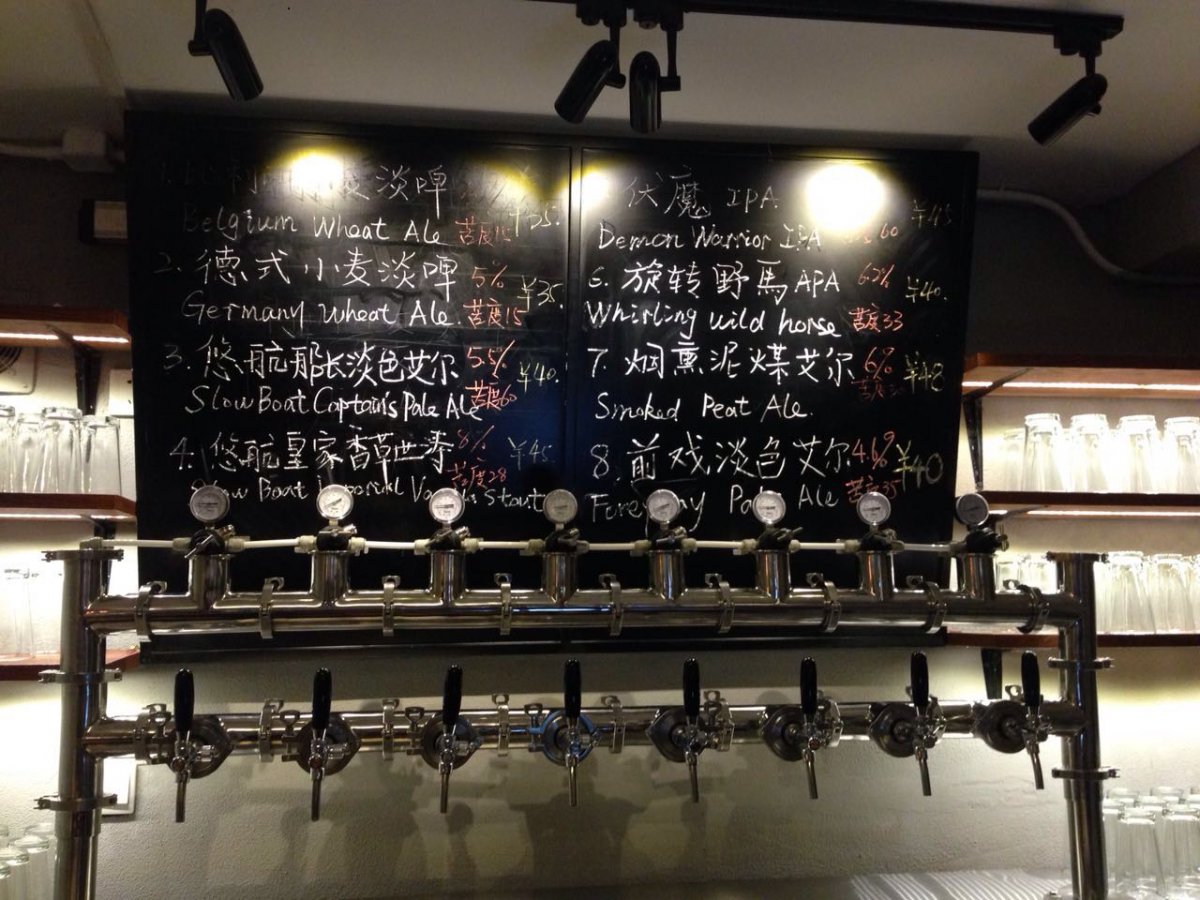 1. 比利时小麦淡啤 ¥35.
Belgium Wheat Ale 苦度15
2. 德式小麦淡啤 5% ¥35.
Germany Wheat Ale. 苦度15
3. 悠航船长淡色艾尔 5.5% ¥40.
Slow Boat Captain's Pale Ale 苦度60
4. 悠航皇家香草世涛 8% ¥45
Slow Boat Imperial Vanilla Stout 苦度28
伏魔 IPA ¥45
Demon Warrior IPA 60
6. 旋转野馬 APA 6.2% ¥40.
Whirling wild horse 苦度33
7. 烟熏泥煤艾尔 6% ¥48
Smoked Peat Ale.
8. 前戏淡色艾尔 4.6% ¥40
Foreplay Pale Ale 苦度35